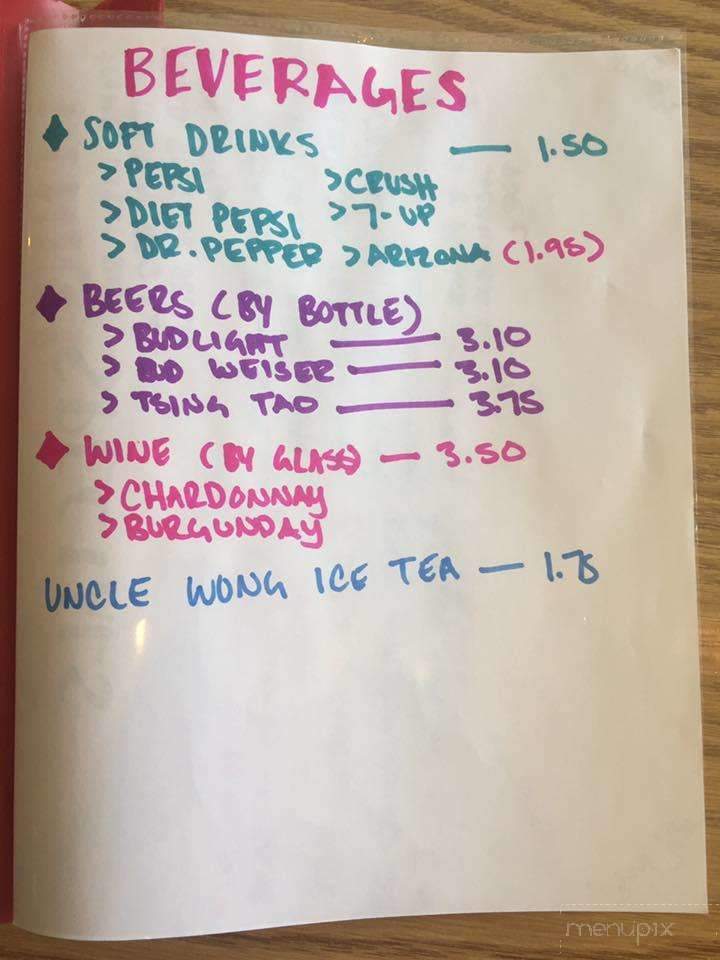 BEVERAGES
◆ SOFT DRINKS — 1.50
> PEPSI > CRUSH
> DIET PEPSI > 7-UP
> DR. PEPPER > ARIZONA (1.95)
◆ BEERS (BY BOTTLE)
> BUDLIGHT — 3.10
> BUD WEISER — 3.10
> TSING TAO — 3.75
◆ WINE (BY GLASS) — 3.50
> CHARDONNAY
> BURGUNDAY
UNCLE WONG ICE TEA — 1.75
menupix